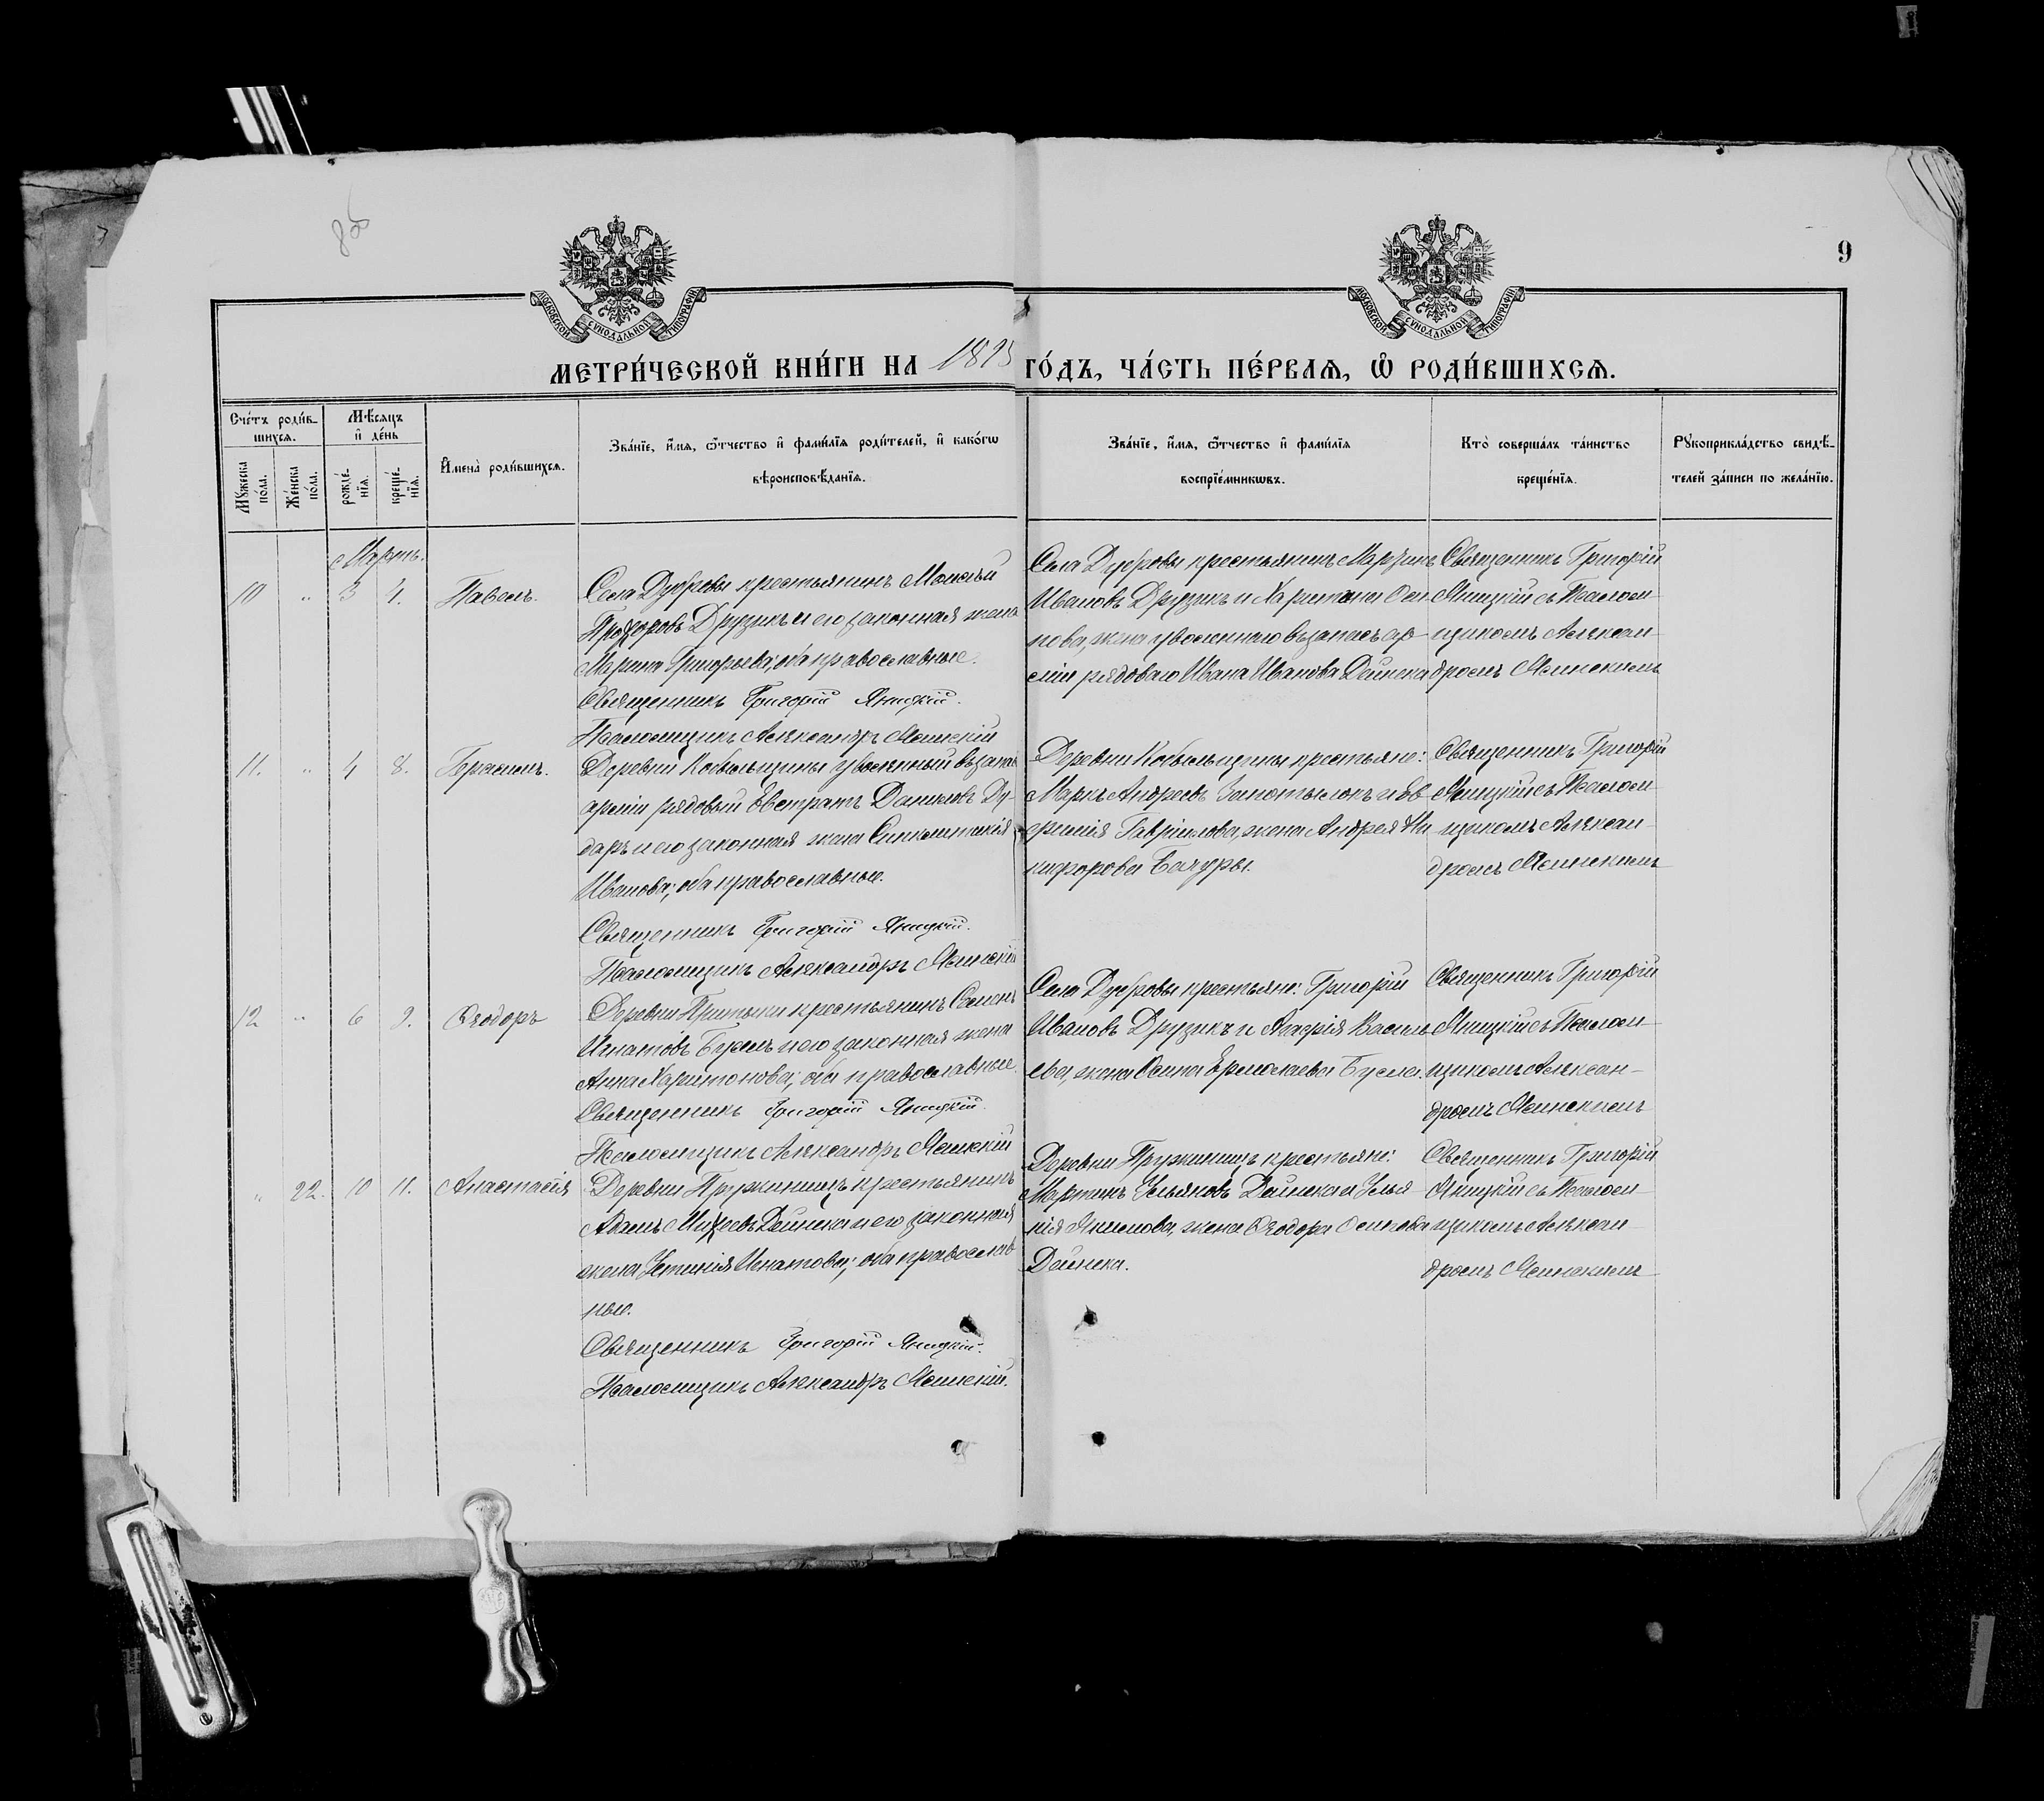 9
МОСКОВСКОЙ СУНОДАЛЬНОЙ ТИПОГРАФІИ
МОСКОВСКОЙ СУНОДАЛЬНОЙ ТИПОГРАФІИ
МЕТРИ́ЧЕСКОЙ КНИ́ГИ НА 1893 ГО́ДЪ, ЧА́СТЬ ПЕ́РВАѦ, Ѽ РОДИ́ВШИХСѦ.
Сче́тъ роди́в-
шихсѧ.
Мѣ́сѧцъ
и҆ де́нь
Мꙋ́жеска
по́ла.
Же́нска
по́ла.
рожде́-
нїѧ.
креще́-
нїѧ.
И҆мена̀ роди́вшихсѧ.
Зва́нїе, и҆́мѧ, ѻ҆́тчество и҆ фами́лїѧ роди́телей, и҆ како́гѡ
вѣроисповѣ́данїѧ.
Зва́нїе, и҆́мѧ, ѻ҆́тчество и҆ фами́лїѧ
воспрїе́мникѡвъ.
Кто̀ соверша́лъ та́инство
креще́нїѧ.
Рꙋкоприкла́дство свидѣ́-
телей за́писи по жела́нїю.
Мартъ.
10 " 3 4. Павелъ.
Села Дубровы крестьянинъ Моисей
Прохоровъ Друзикъ и его законная жена
Марина Григорьева; оба православные.
Священникъ Григорій Яницкій.
Псаломщикъ Александръ Ясинскій
Села Дубровы крестьянинъ Мартинъ
Ивановъ Друзикъ и Харитина Оси
пова, жена уволеннаго въ запасъ ар-
міи рядоваго Ивана Иванова Дейнека
Священникъ Григорій
Яницкій съ Псаломщ
щикомъ Алексан-
дромъ Ясинскимъ
11. " 4 8. Герасимъ.
Деревни Кобыльщины уволенный въ запасъ
арміи рядовый Евстратъ Даниловъ Ду-
даръ и его законная жена Синклитикія
Иванова; оба православные.
Священникъ Григорій Яницкій.
Псаломщикъ Александръ Ясинскій
Деревни Кобыльщины крестьяне:
Маркъ Андреевъ Запотылокъ и Ев
фимія Гавріилова, жена Андрея Ни
кифорова Бачуры.
Священникъ Григорій
Яницкій съ Псаломщ
щикомъ Алексан-
дромъ Ясинскимъ
12 " 6 9. Ѳеодоръ
Деревни Притыки крестьянинъ Семенъ
Игнатовъ Буселъ и его законная жена
Анна Харитонова; оба православные.
Священникъ Григорій Яницкій.
Псаломщикъ Александръ Ясинскій
Села Дубровы крестьяне: Григорій
Ивановъ Друзикъ и Агафія Василь
ева, жена Осипа Ермолаева Бусла.
Священникъ Григорій
Яницкій съ Псаломщ
щикомъ Алексан-
дромъ Ясинскимъ
" 22. 10 11. Анастасія
Деревни Пружиницъ крестьянинъ
Адамъ Михеевъ Дейнека и его законная
жена Устинія Игнатова; оба православ
ные.
Священникъ Григорій Яницкій.
Псаломщикъ Александръ Ясинскій.
Деревни Пружиницъ крестьяне:
Мартинъ Ульяновъ Дейнека и Улья
нія Якимова, жена Ѳеодора Осипова
Дейнека.
Священникъ Григорій
Яницкій съ Псаломщ
щикомъ Алексан-
дромъ Ясинскимъ